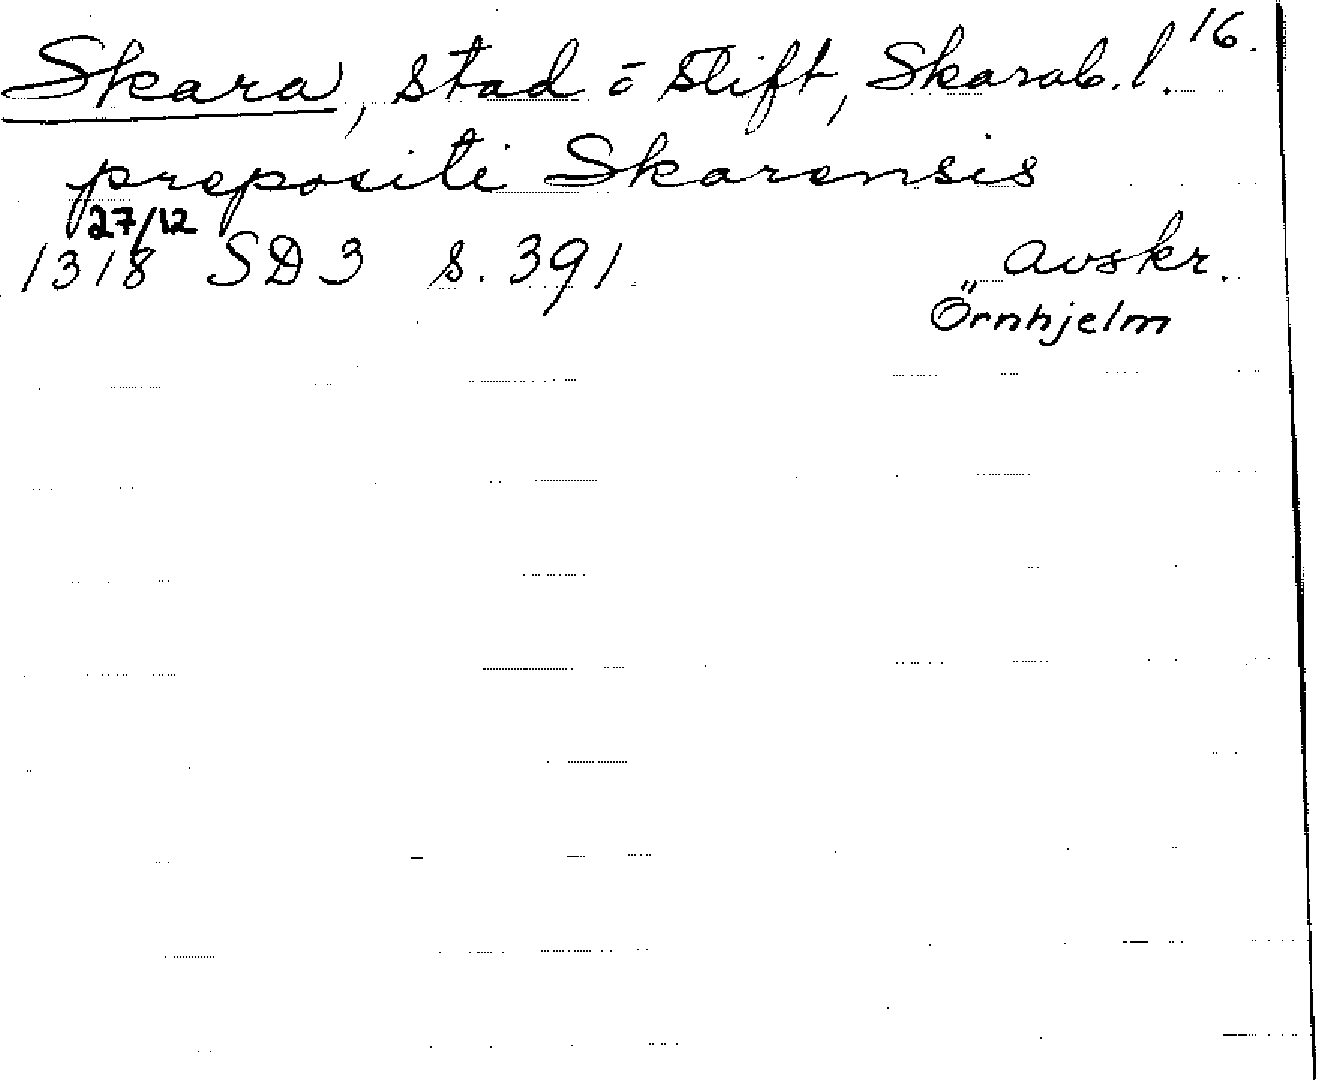 16.
Skara, stad o Stift, Skarab. l.
prepositi Skarensis
27/12
1318 SD 3 s. 391 avskr.
Örnhjelm